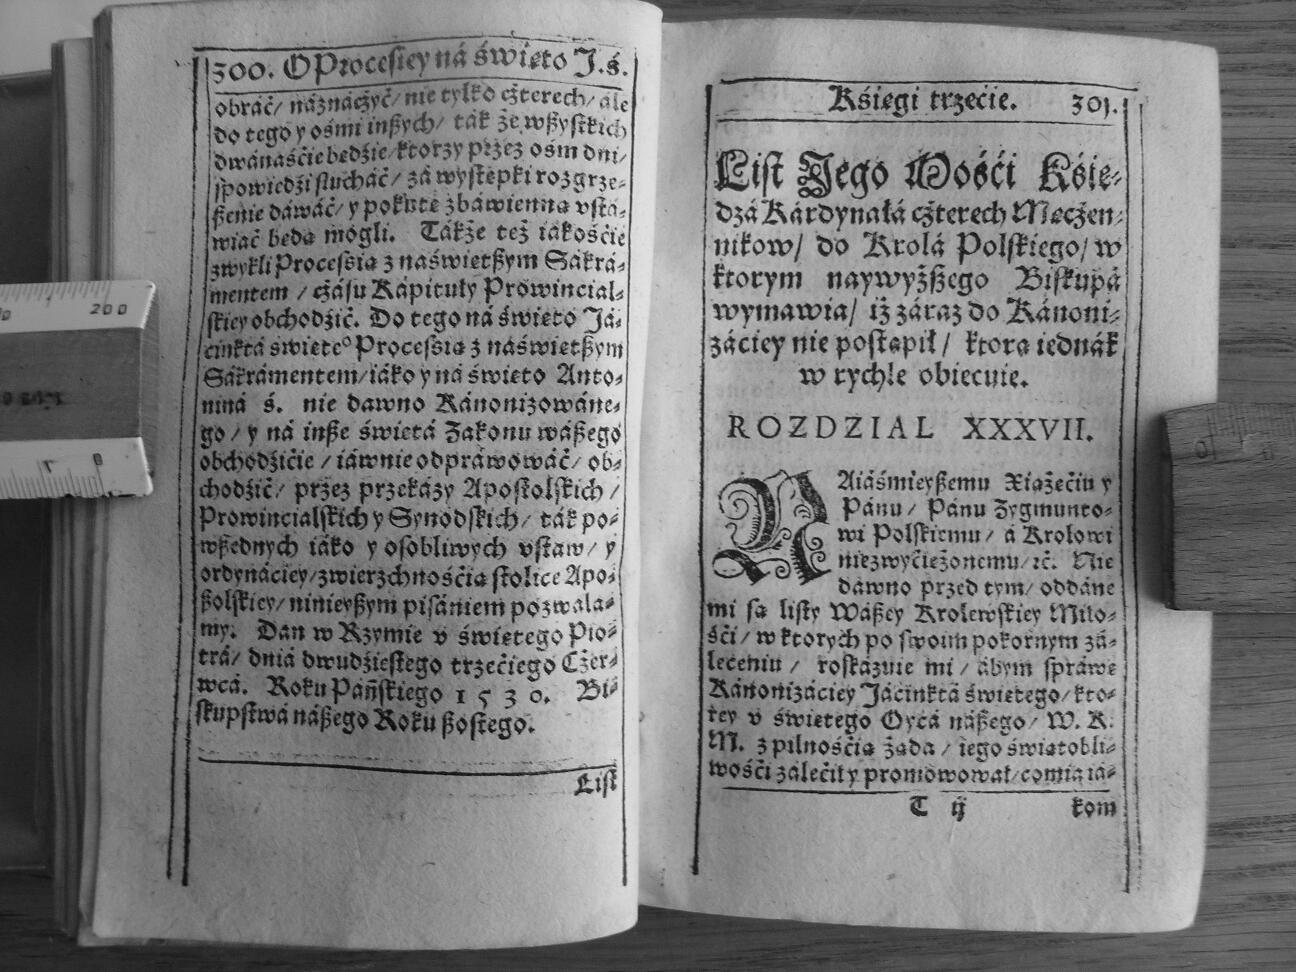 300. O Procesiey ná święto J. ś.
obráć/ náznáczyć/ nie tylko czterech/ ále
do tego y ośmi inßych/ ták że wßystkich
dwánaśćie będźie/ ktorzy przez ośm dni/
spowiedźi słucháć/ zá występki rozgrze-
ßenie dáwáć/ y pokutę zbáwienną vstá-
wiáć będą mogli. Tákże też iákośćie
zwykli Processią z naświetßym Sákrá-
mentem / czásu Kápituły Prowincial-
skiey obchodźić. Do tego ná święto Já-
cinktá święte° Processią z náświetßym
Sákrámentem/ iáko y ná święto Anto-
niná ś. nie dawno Kánonizowáne-
go / y ná inße święta Zakonu wáßego
obchodźićie / iáwnie odpráwowáć/ ob-
chodźić/ przez przekázy Apostolskich /
Prowincialskich y Synodskich/ ták po-
wßednych iáko y osobliwych vstaw/ y
ordynáciey/ zwierzchnośćią stolice Apo-
stolskiey/ ninieyßym pisániem pozwala-
my. Dan w Rzymie v świętego Pio-
trá/ dniá dwudźiestego trzećiego Czer-
wcá. Roku Páńskiego 1530. Bi-
skupstwá náßego Roku ßostego.
List
Kśięgi trzećie. 301.
List Jego Mośći Kśię-
dzá Kárdynałá czterech Męczen-
nikow/ do Krolá Polskiego/ w
ktorym naywyżßego Biskupá
wymawia/ iż záraz do Kánoni-
záciey nie postąpił / ktorą iednák
w rychle obiecuie.
ROZDZIAL XXXVII.
NAiáśnieyßemu Xiążęćiu y
Pánu / Pánu Zygmunto-
wi Polskiemu / á Krolowi
niezwyćiężonemu/ ꝛć. Nie
dawno przed tym/ oddáne
mi są listy Wáßey Krolewskiey Miło-
śći / w ktorych po swoim pokornym zá-
leceniu / roskázuie mi / ábym spráwę
Kánonizáciey Jácinktá świętego/ kto-
rey v świętego Oycá náßego/ W. K.
M. z pilnośćią żąda / iego świątobli-
wośći zálećił y promowował/ co mią iá-
T ij kom